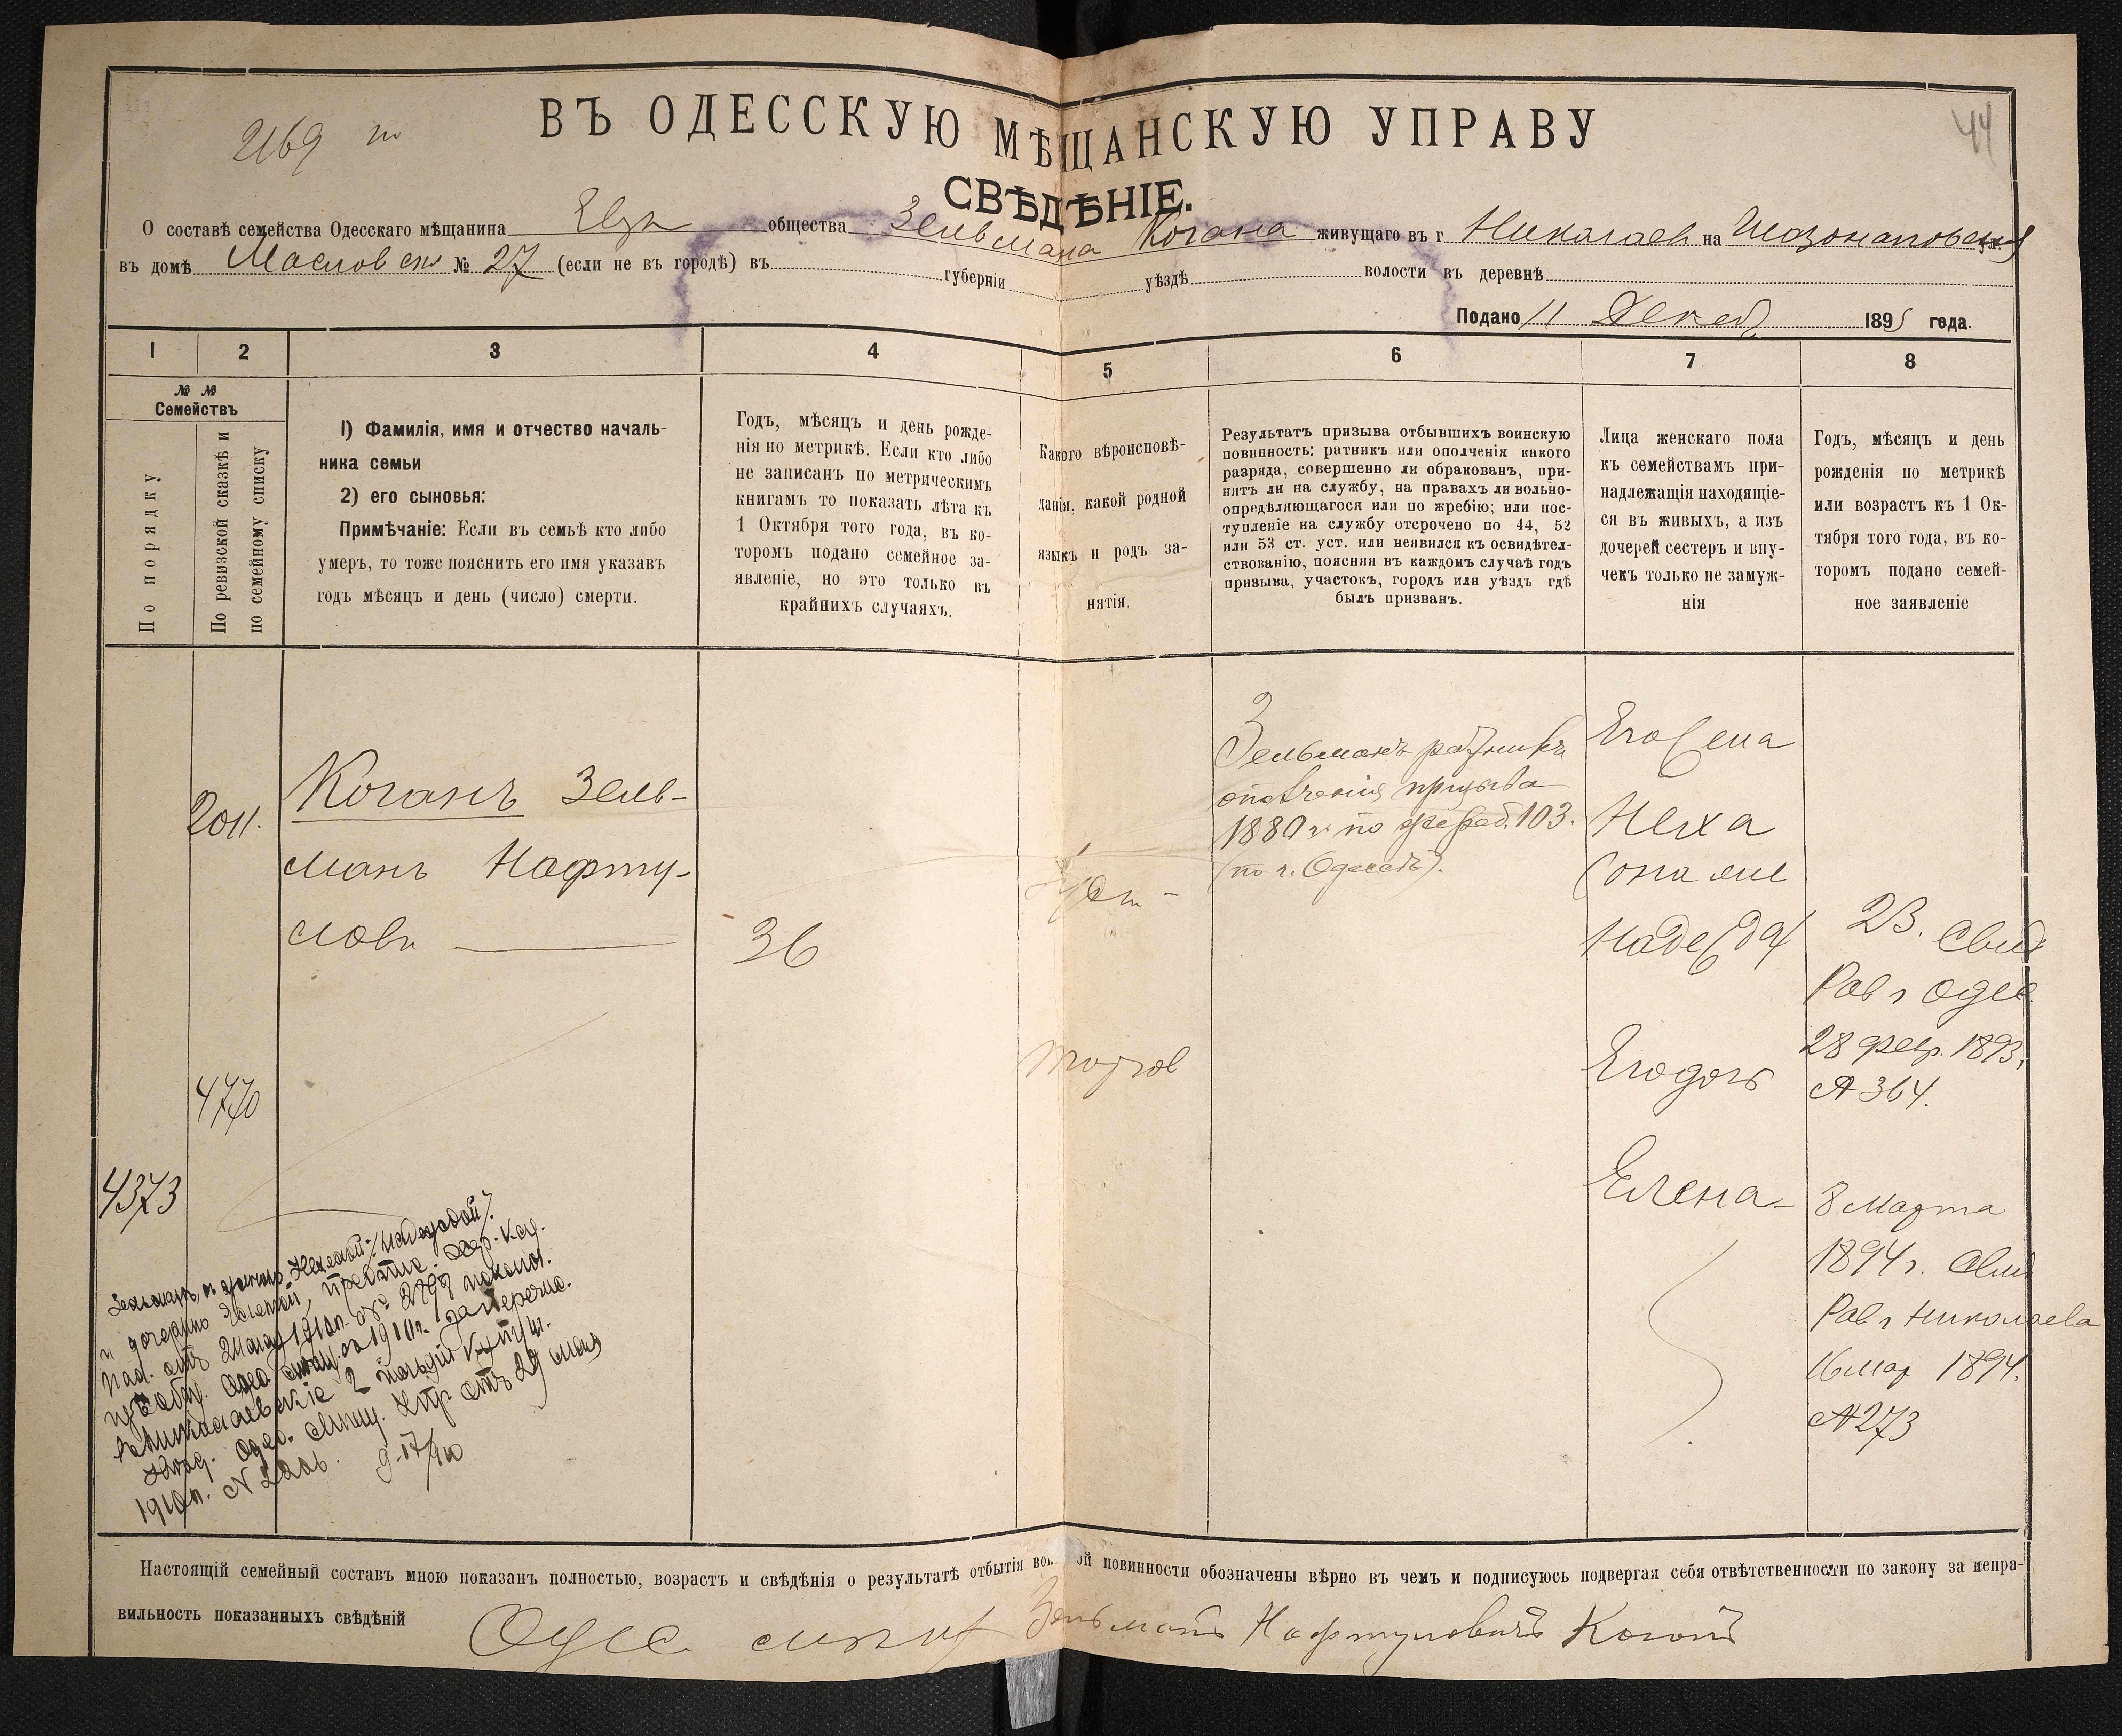 2169
44
ВЪ ОДЕССКУЮ МѢЩАНСКУЮ УПРАВУ
СВѢДѢНІЕ.
О составѣ семейства Одесскаго мѣщанина Евр общества Зельмана Когана живущаго въ г Николаев на
въ домѣ Маслов № 27 (если не въ городѣ) въ губерніи уѣздѣ волости въ деревнѣ
Подано 11 Декаб 1895 года.
1 2 3 4 5 6 7 8
№ №
Семействъ
По порядку
По ревизской сказкѣ и
по семейному списку
1) Фамилія, имя и отчество началь-
ника семьи
2) его сыновья:
Примѣчаніе: Если въ семьѣ кто либо
умеръ, то тоже пояснить его имя указавъ
годъ мѣсяцъ и день (число) смерти.
Годъ, мѣсяцъ и день рожде-
нія по метрикѣ. Если кто либо
не записанъ по метрическимъ
книгамъ то показать лѣта къ
1 Октября того года, въ ко-
торомъ подано семейное за-
явленіе, но это только въ
крайнихъ случаяхъ.
Какого вѣроисповѣ-
данія, какой родной
языкъ и родъ за-
нятія.
Результатъ призыва отбывшихъ воинскую
повинность: ратникъ или ополченія какого
разряда, совершенно ли обракованъ, при-
нятъ ли на службу, на правахъ ли вольно-
опредѣляющагося или по жребію; или пос-
тупленіе на службу отсрочено по 44, 52
или 53 ст. уст. или неявился къ освидѣтел-
ствованію, поясняя въ каждомъ случаѣ годъ
призыва, участокъ, городъ или уѣздъ гдѣ
былъ призванъ.
Лица женскаго пола
къ семействамъ при-
надлежащія находящіе-
ся въ живыхъ, а изъ
дочерей сестеръ и вну-
чекъ только не замуж-
нія
Годъ, мѣсяцъ и день
рожденія по метрикѣ
или возрастъ къ 1 Ок-
тября того года, въ ко-
торомъ подано семей-
ное заявленіе
2011.
4770
4373
Коганъ Зель-
манъ Нафту-
ловъ
36
торгов
Зельманъ ратникъ
ополченія призыва
1880 г. по жереб. 103.
(по г. Одессѣ).
Его жена
Неха
(она же
Надежда)
Его дочь
Елена
23. Свид
Рав г Одес.
28 февр. 1893.
№ 364.
8 Марта
1894 г. Свид
Рав г Николаева
16 мар 1894.
№ 273
Настоящій семейный составъ мною показанъ полностью, возрастъ и свѣдѣнія о результатѣ отбытія вои ой повинности обозначены вѣрно въ чемъ и подписуюсь подвергая себя отвѣтственности по закону за непра-
вильность показанныхъ свѣдѣній
Одес. Зельманъ Нафтуловичъ Коганъ